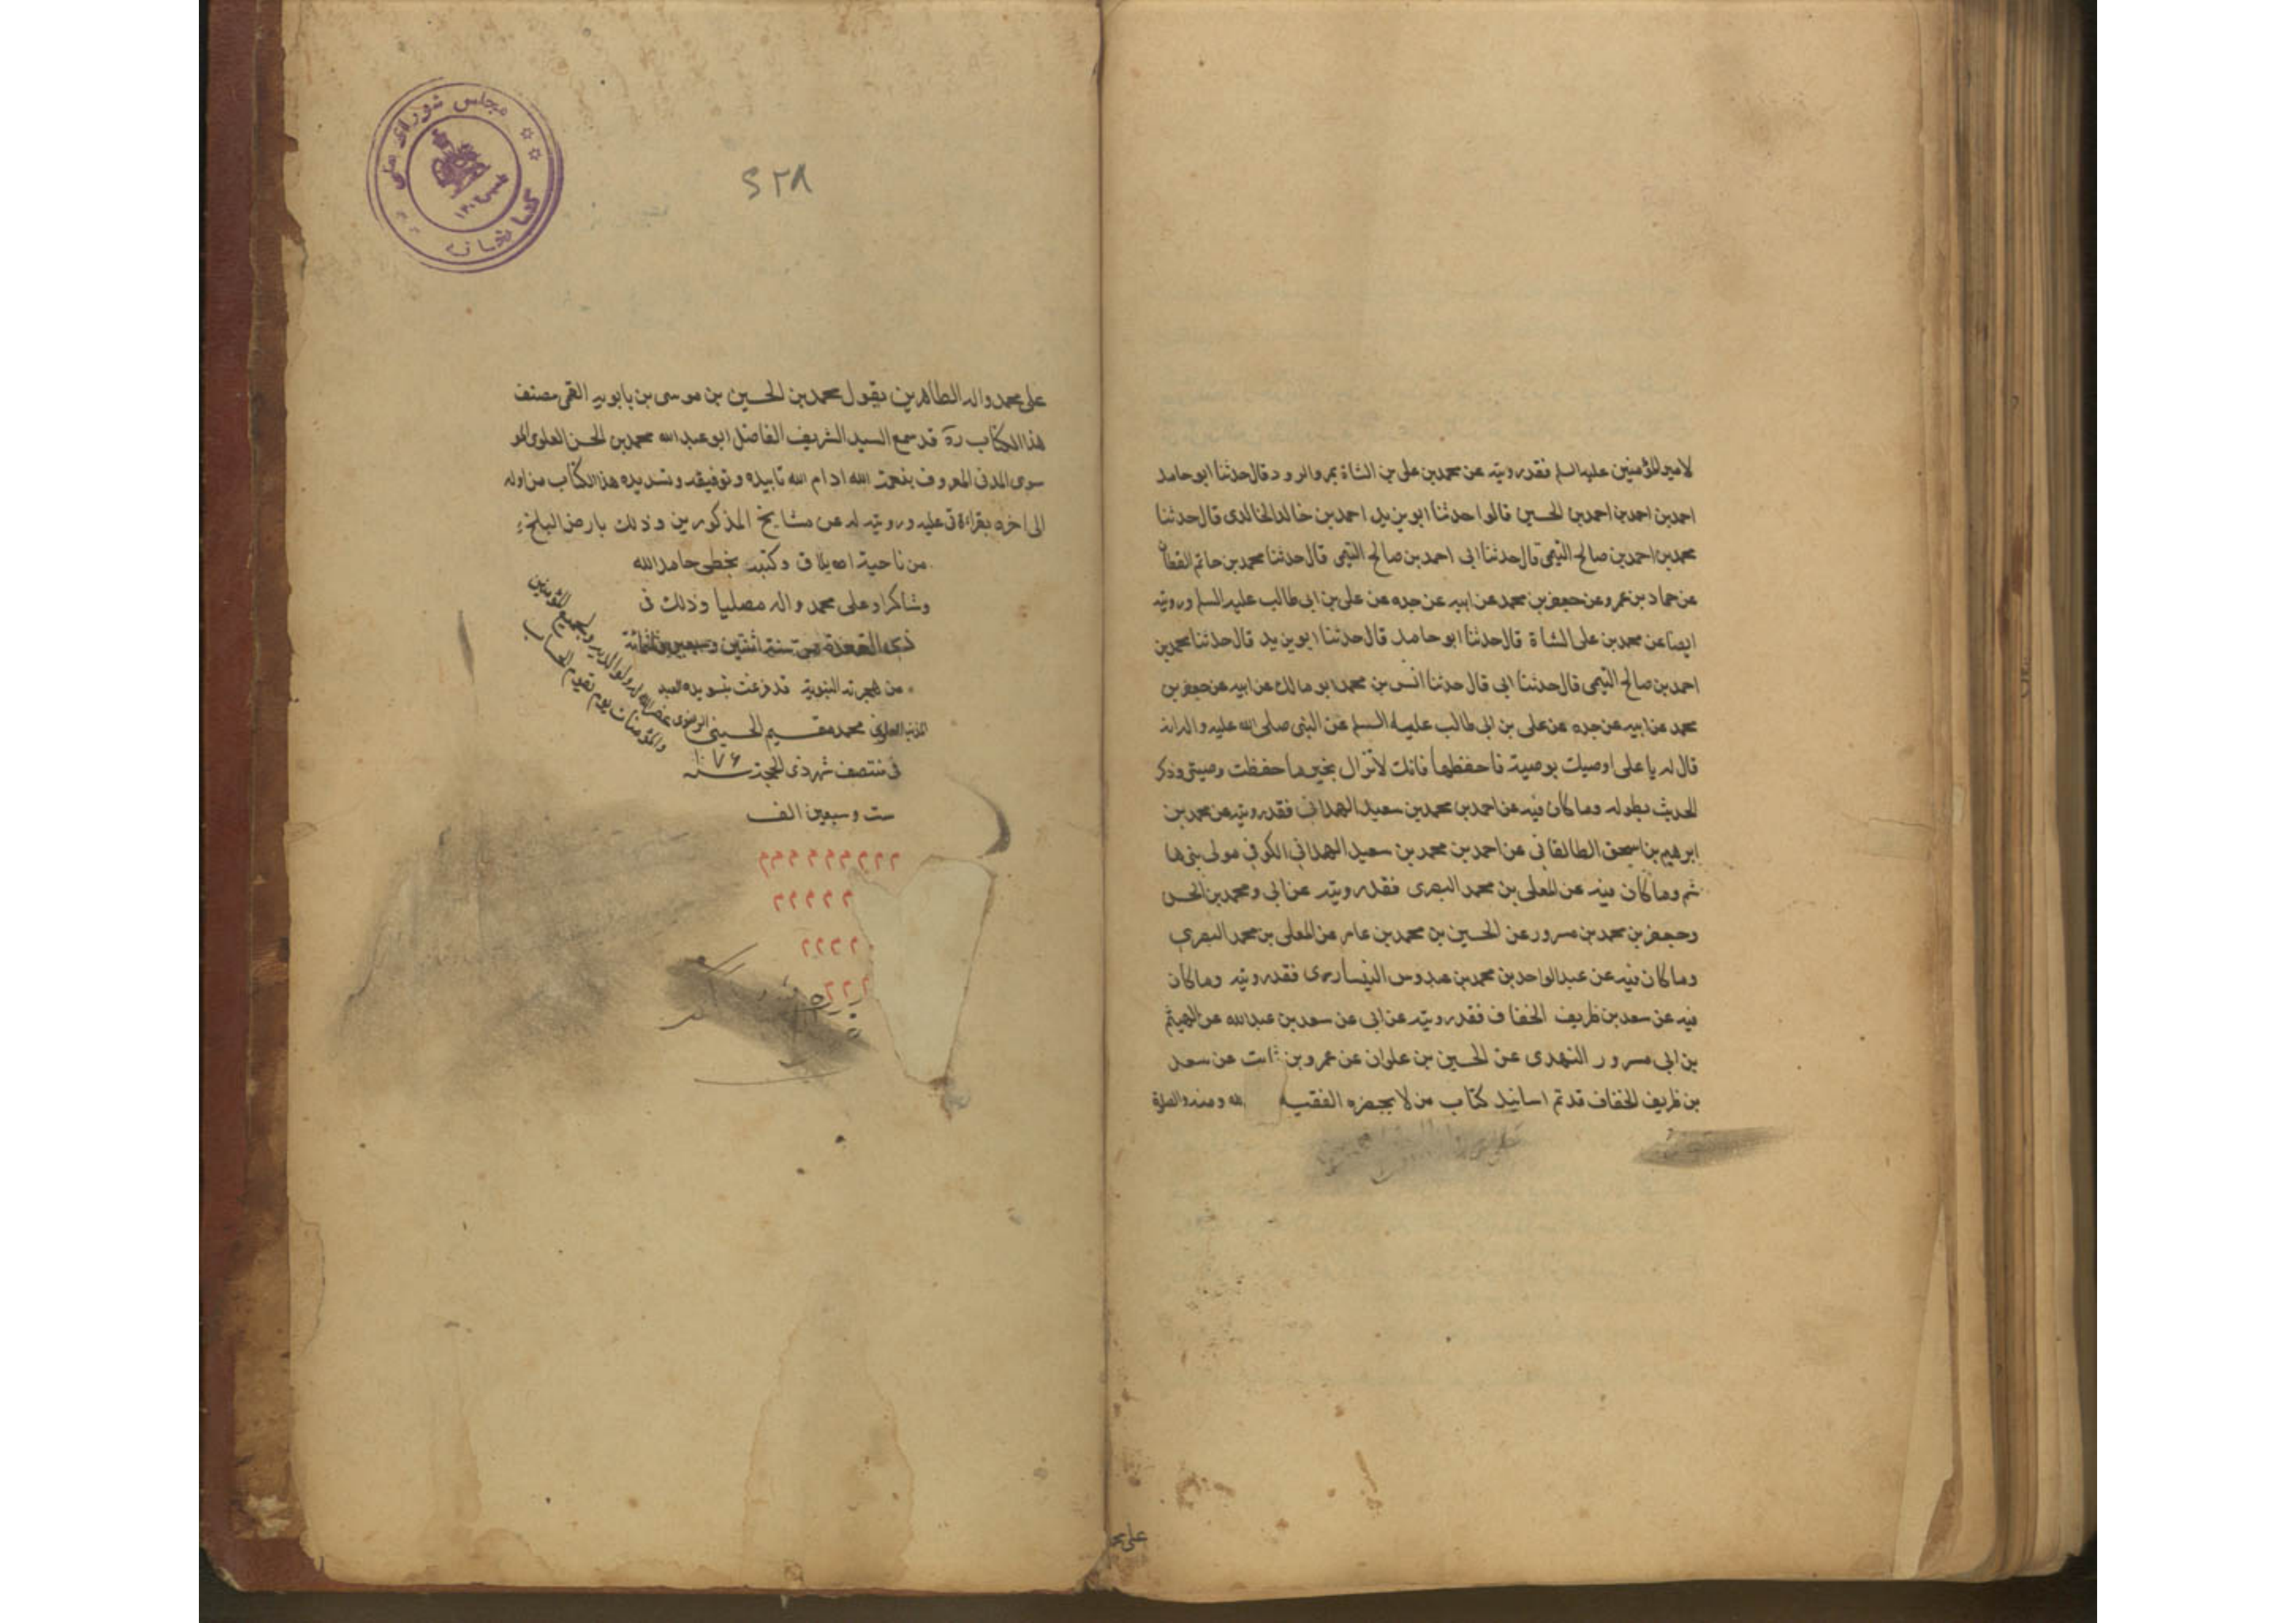 لامير المؤمنين عليه السلم فقد رويته عن محمد بن علي بن الشاة بمرو الرود قال حدثنا ابو حامد
احمد بن احمد بن احمد بن الحسين قالوا حدثنا ابو يزيد احمد بن خالد الخالدى قال حدثنا
محمد بن احمد بن صالح التيمى قال حدثنا ابى احمد بن صالح التيمى قال حدثنا محمد بن حاتم القطان
عن حماد بن عمرو عن جعفر بن محمد عن ابيه عن جده عن على بن ابى طالب عليه السلم ورويته
ايضا عن محمد بن على الشاة قال حدثنا ابو حامد قال حدثنا ابو يزيد قال حدثنا محمد بن
احمد بن صالح التيمى قال حدثنا ابى قال حدثنا انس بن محمد ابو مالك عن ابيه عن جعفر بن
محمد عن ابيه عن جده عن على بن ابى طالب عليه السلم عن النبى صلى الله عليه واله انه
قال له يا على اوصيك بوصية فاحفظها فانك لا تزال بخير ما حفظت وصيتى وذكر
الحديث بطوله وما كان فيه عن احمد بن محمد بن سعيد الهمدانى فقد رويته عن محمد بن
ابرهيم بن اسحق الطالقانى عن احمد بن محمد بن سعيد الهمدانى الكوفى مولى بنى ها
شم وما كان فيه عن المعلى بن محمد البصرى فقد رويته عن ابى ومحمد بن الحسن
وجعفر بن محمد بن مسرور عن الحسين بن محمد بن عامر عن المعلى بن محمد البصرى
وما كان فيه عن عبد الواحد بن محمد بن عبدوس النيسابورى فقد رويته وما كان
فيه عن سعد بن ظريف الخفاف فقد رويته عن ابى عن سعد بن عبد الله عن الهيثم
بن ابى مسرور النهدى عن الحسين بن علوان عن عمرو بن ثابت عن سعد
بن ظريف الخفاف قد تم اسانيد كتاب من لا يحضره الفقيه لله ومنه والصلوة
على محمد
٥٢٨
مجلس شورای ملی
كتابخانه
على محمد واله الطاهرين يقول محمد بن الحسين بن موسى بن بابويه القمى مصنف
هذا الكتاب ره قد سمع السيد الشريف الفاضل ابو عبد الله محمد بن الحسن العلوى المو
سوى المدنى المعروف بنعمت الله ادام الله تاييده وتوفيقه وتسديده هذا الكتاب من اوله
الى اخره بقراءتى عليه ورويته له عن مشايخ المذكورين وذلك بارض البلخ
من ناحية ايلاق وكتبت بخطى حامدا لله
وشاكرا وعلى محمد واله مصليا وذلك فى
ذى القعدة من سنة اثنتين وسبعين وثلثمائة
من الهجرة النبوية قد فرغت بتسويده العبد
المذنب محمد مقيم الحسينى الرضوى غفر الله له ولوالديه ولجميع المؤمنين
والمؤمنات يوم يقوم الحساب
فى منتصف شهر ذى الحجة سنه ١٠٧٦
ست وسبعين الف